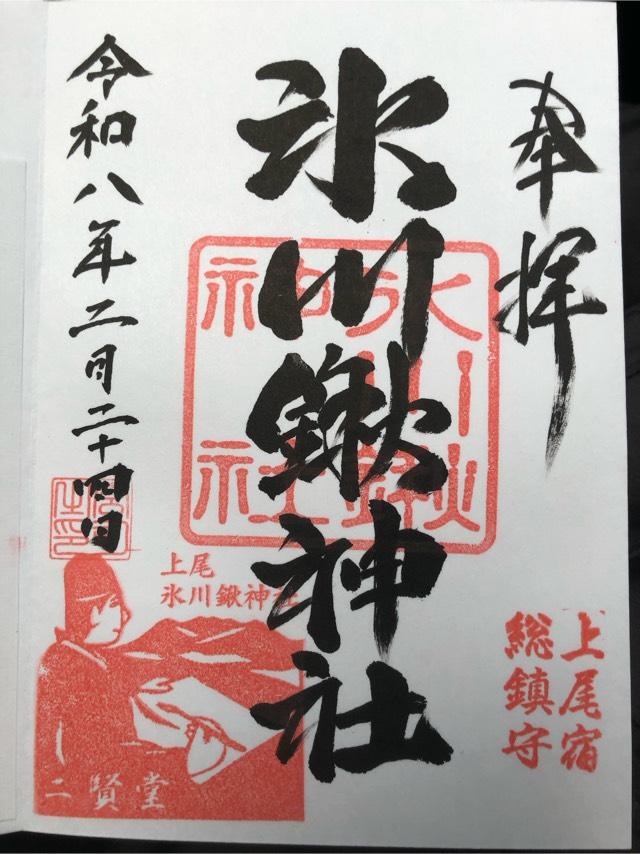 奉拝
氷川鍬神社
令和八年二月二十四日
氷川鍬
神社
上尾宿
総鎮守
上尾
氷川鍬神社
二賢堂